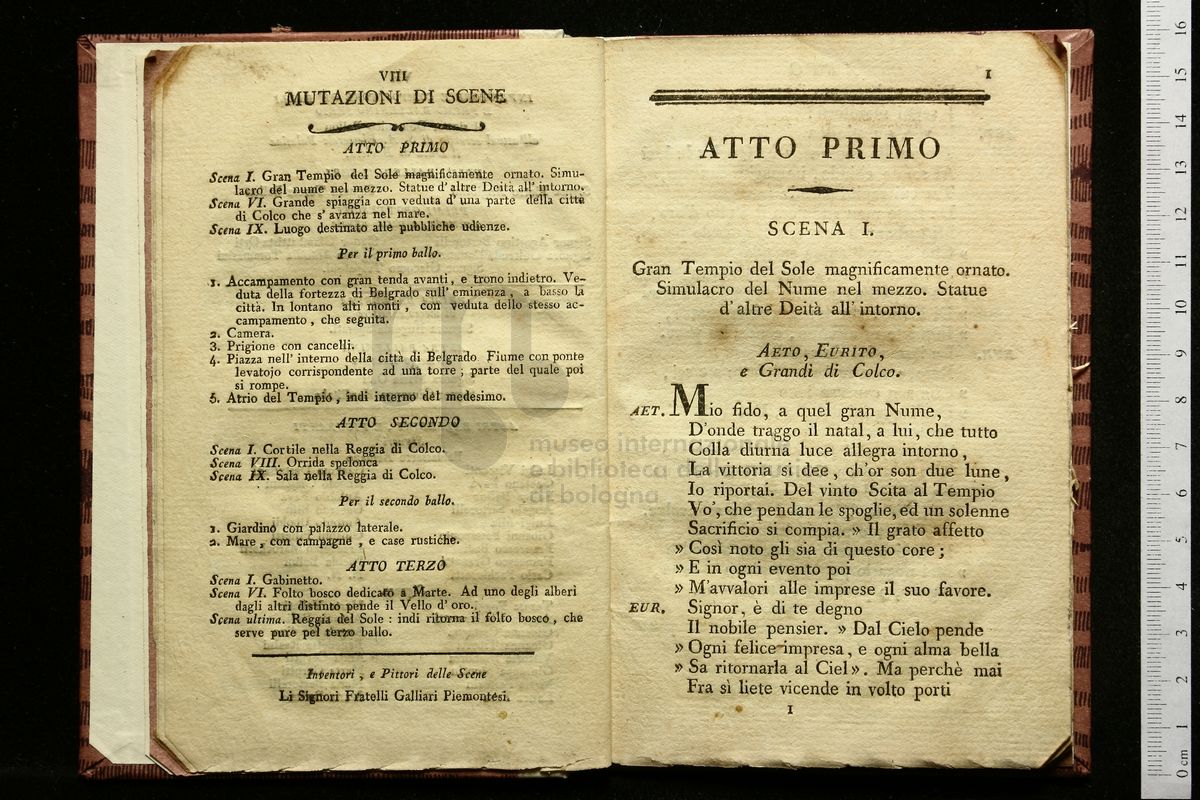 VIII
MUTAZIONI DI SCENE
ATTO PRIMO
Scena I. Gran Tempio del Sole magnificamente ornato. Simu-
lacro del nume nel mezzo. Statue d' altre Deità all' intorno.
Scena VI. Grande spiaggia con veduta d' una parte della città
di Colco che s' avanza nel mare.
Scena IX. Luogo destinato alle pubbliche udienze.
Per il primo ballo.
1. Accampamento con gran tenda avanti, e trono indietro. Ve-
duta della fortezza di Belgrado sull' eminenza, a basso la
città. In lontano alti monti, con veduta dello stesso ac-
campamento, che seguita.
2. Camera.
3. Prigione con cancelli.
4. Piazza nell' interno della città di Belgrado Fiume con ponte
levatojo corrispondente ad una torre; parte del quale poi
si rompe.
5. Atrio del Tempio, indi interno del medesimo.
ATTO SECONDO
Scena I. Cortile nella Reggia di Colco.
Scena VIII. Orrida spelonca
Scena IX. Sala nella Reggia di Colco.
Per il secondo ballo.
1. Giardino con palazzo laterale.
2. Mare, con campagne, e case rustiche.
ATTO TERZO
Scena I. Gabinetto.
Scena VI. Folto bosco dedicato a Marte. Ad uno degli alberi
dagli altri distinto pende il Vello d' oro.
Scena ultima. Reggia del Sole: indi ritorna il folto bosco, che
serve pure pel terzo ballo.
Inventori, e Pittori delle Scene
Li Signori Fratelli Galliari Piemontesi.
1
ATTO PRIMO
SCENA I.
Gran Tempio del Sole magnificamente ornato.
Simulacro del Nume nel mezzo. Statue
d' altre Deità all' intorno.
AETO, EURITO,
e Grandi di Colco.
AET. Mio fido, a quel gran Nume,
D'onde traggo il natal, a lui, che tutto
Colla diurna luce allegra intorno,
La vittoria si dee, ch'or son due lune,
Io riportai. Del vinto Scita al Tempio
Vo', che pendan le spoglie, ed un solenne
Sacrificio si compia. » Il grato affetto
» Così noto gli sia di questo core;
» E in ogni evento poi
» M'avvalori alle imprese il suo favore.
EUR. Signor, è di te degno
Il nobile pensier. » Dal Cielo pende
» Ogni felice impresa, e ogni alma bella
» Sa ritornarla al Ciel». Ma perchè mai
Fra sì liete vicende in volto porti
1
museo internazionale
e biblioteca d
di bologna
0 cm 1 2 3 4 5 6 7 8 9 10 11 12 13 14 15 16